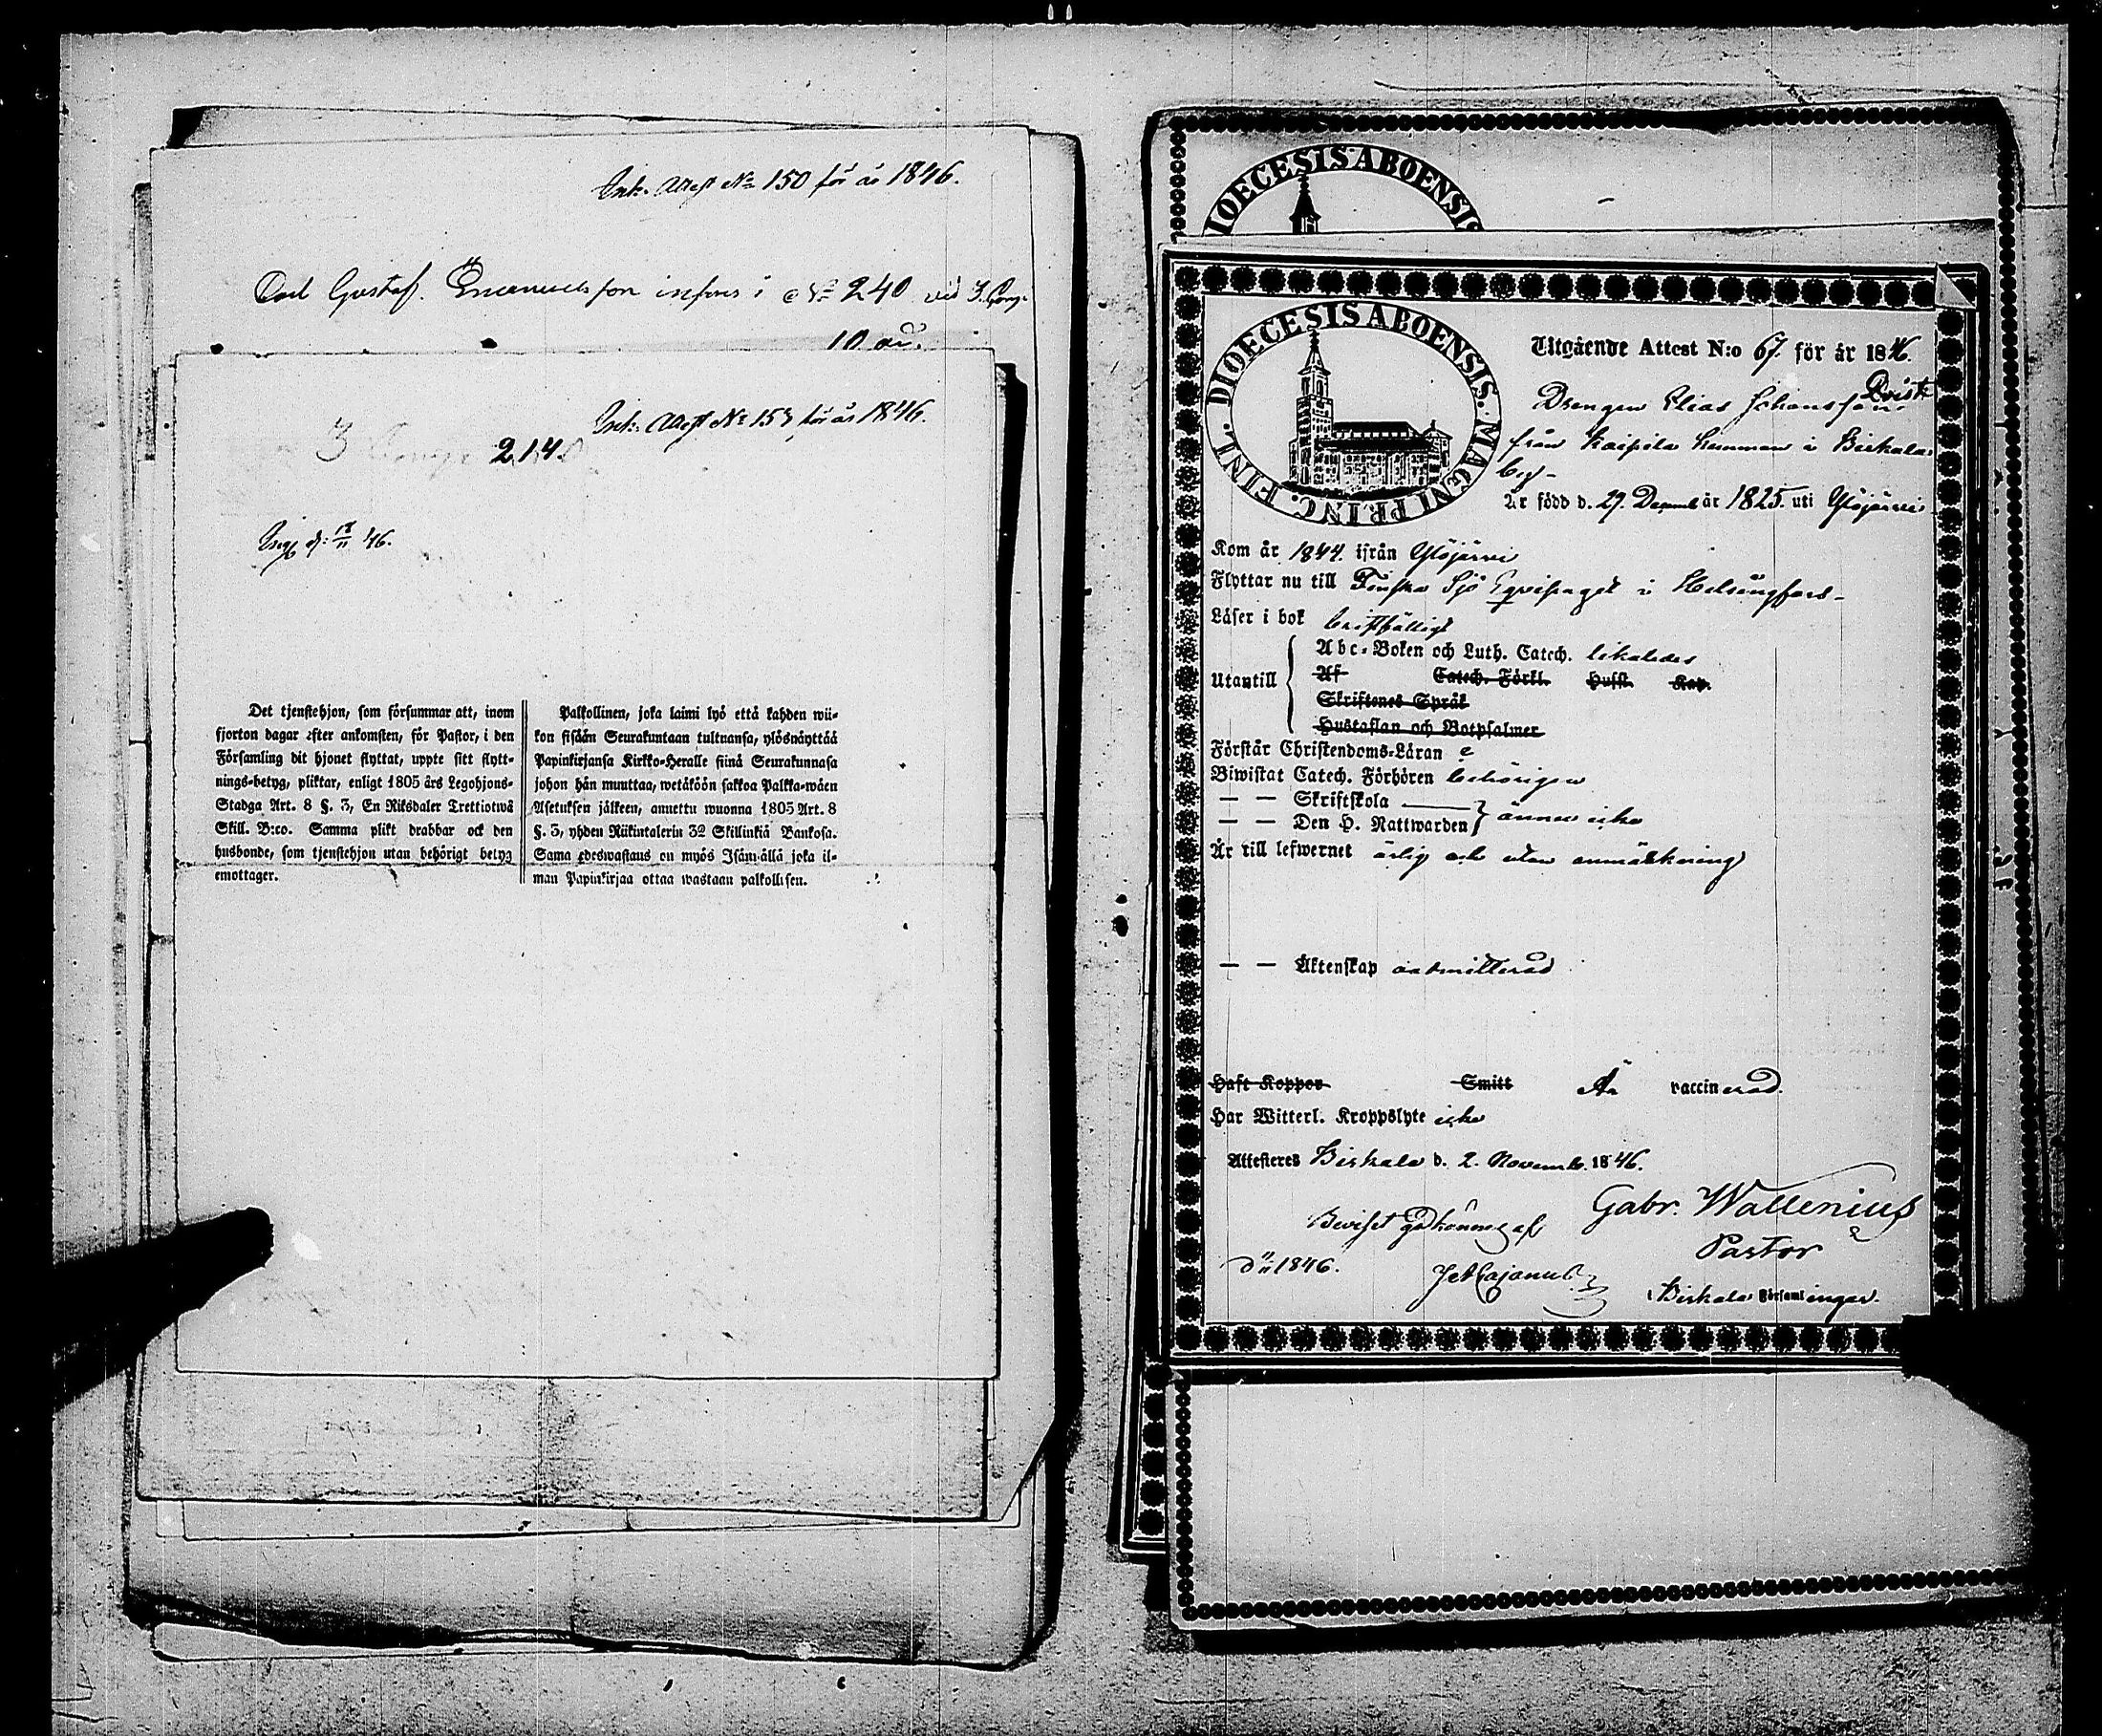 Ink. Attest No 150 för år 1846.
Carl Gustaf Emanuelsson införes i No 240 vid 3. Comp.
Ink. Attest No 153 för år 1846.
214.
46.
Det tjenstehjon, som försummar att, inom
fjorton dagar efter ankomsten, för Pastor, i den
Församling dit hjonet flyttat, uppte sitt flytt-
nings-betyg, pliktar, enligt 1805 års Legohjons-
Stadga Art. 8 §. 3, En Riksdaler Trettiotwå
Skill. B:co. Samma plikt drabbar ock den
husbonde, som tjenstehjon utan behörigt betyg
emottager.
Palkollinen, joka laimi lyö että kahden wii-
kon sisään Seurakuntaan tultuansa, ylösnäyttää
Papinkirjansa Kirkko-Heralle siinä Seurakunnasa
johon hän muuttaa, wetäköön sakkoa Palkka-wäen
Asetuksen jälkeen, annettu wuonna 1805 Art. 8
§. 3, yhden Riikintalerin 32 Skillinkiä Bankosa.
Sama edeswastaus on myös Isännällä joka il-
man Papinkirjaa ottaa wastaan palkollisen.
DIOECESIS ABOENSIS
DIOECESIS ABOENSIS. MAGNI PRINC. FINL.
Utgående Attest N:o 67. för år 1846.
Drengen Elias Johansson
från Kaipila hemman i Birkala
by-
Är född d. 29. Decemb år 1825. uti Ylöjärvi
Kom år 1844. ifrån Ylöjärvi
Flyttar nu till Finska Sjö Eqvipaget i Helsingfors-
Läser i bok bristfälligt
Utantill
Abc-Boken och Luth. Catech. likaledes
Af Catech. Förkl. Hufst. Kap.
Skriftenes Språk
Hustaflan och Botpsalmer
Förstår Christendoms-Läran
Biwistat Catech. Förhören behörigen
— — Skriftskola
— — Den H. Nattwarden } ännu icke
Är till lefwernet ärlig och utan anmärkning
— — Äktenskap oadmitterad
Haft Koppor Smitt Är vaccinerad.
Har Witterl. Kroppslyte icke
Attesteres Birkala d. 2. Novemb. 1846.
Gabr. Wallenius
Pastor
i Birkala Församlingar.
Beviset godkännes af
1846. Cajanus